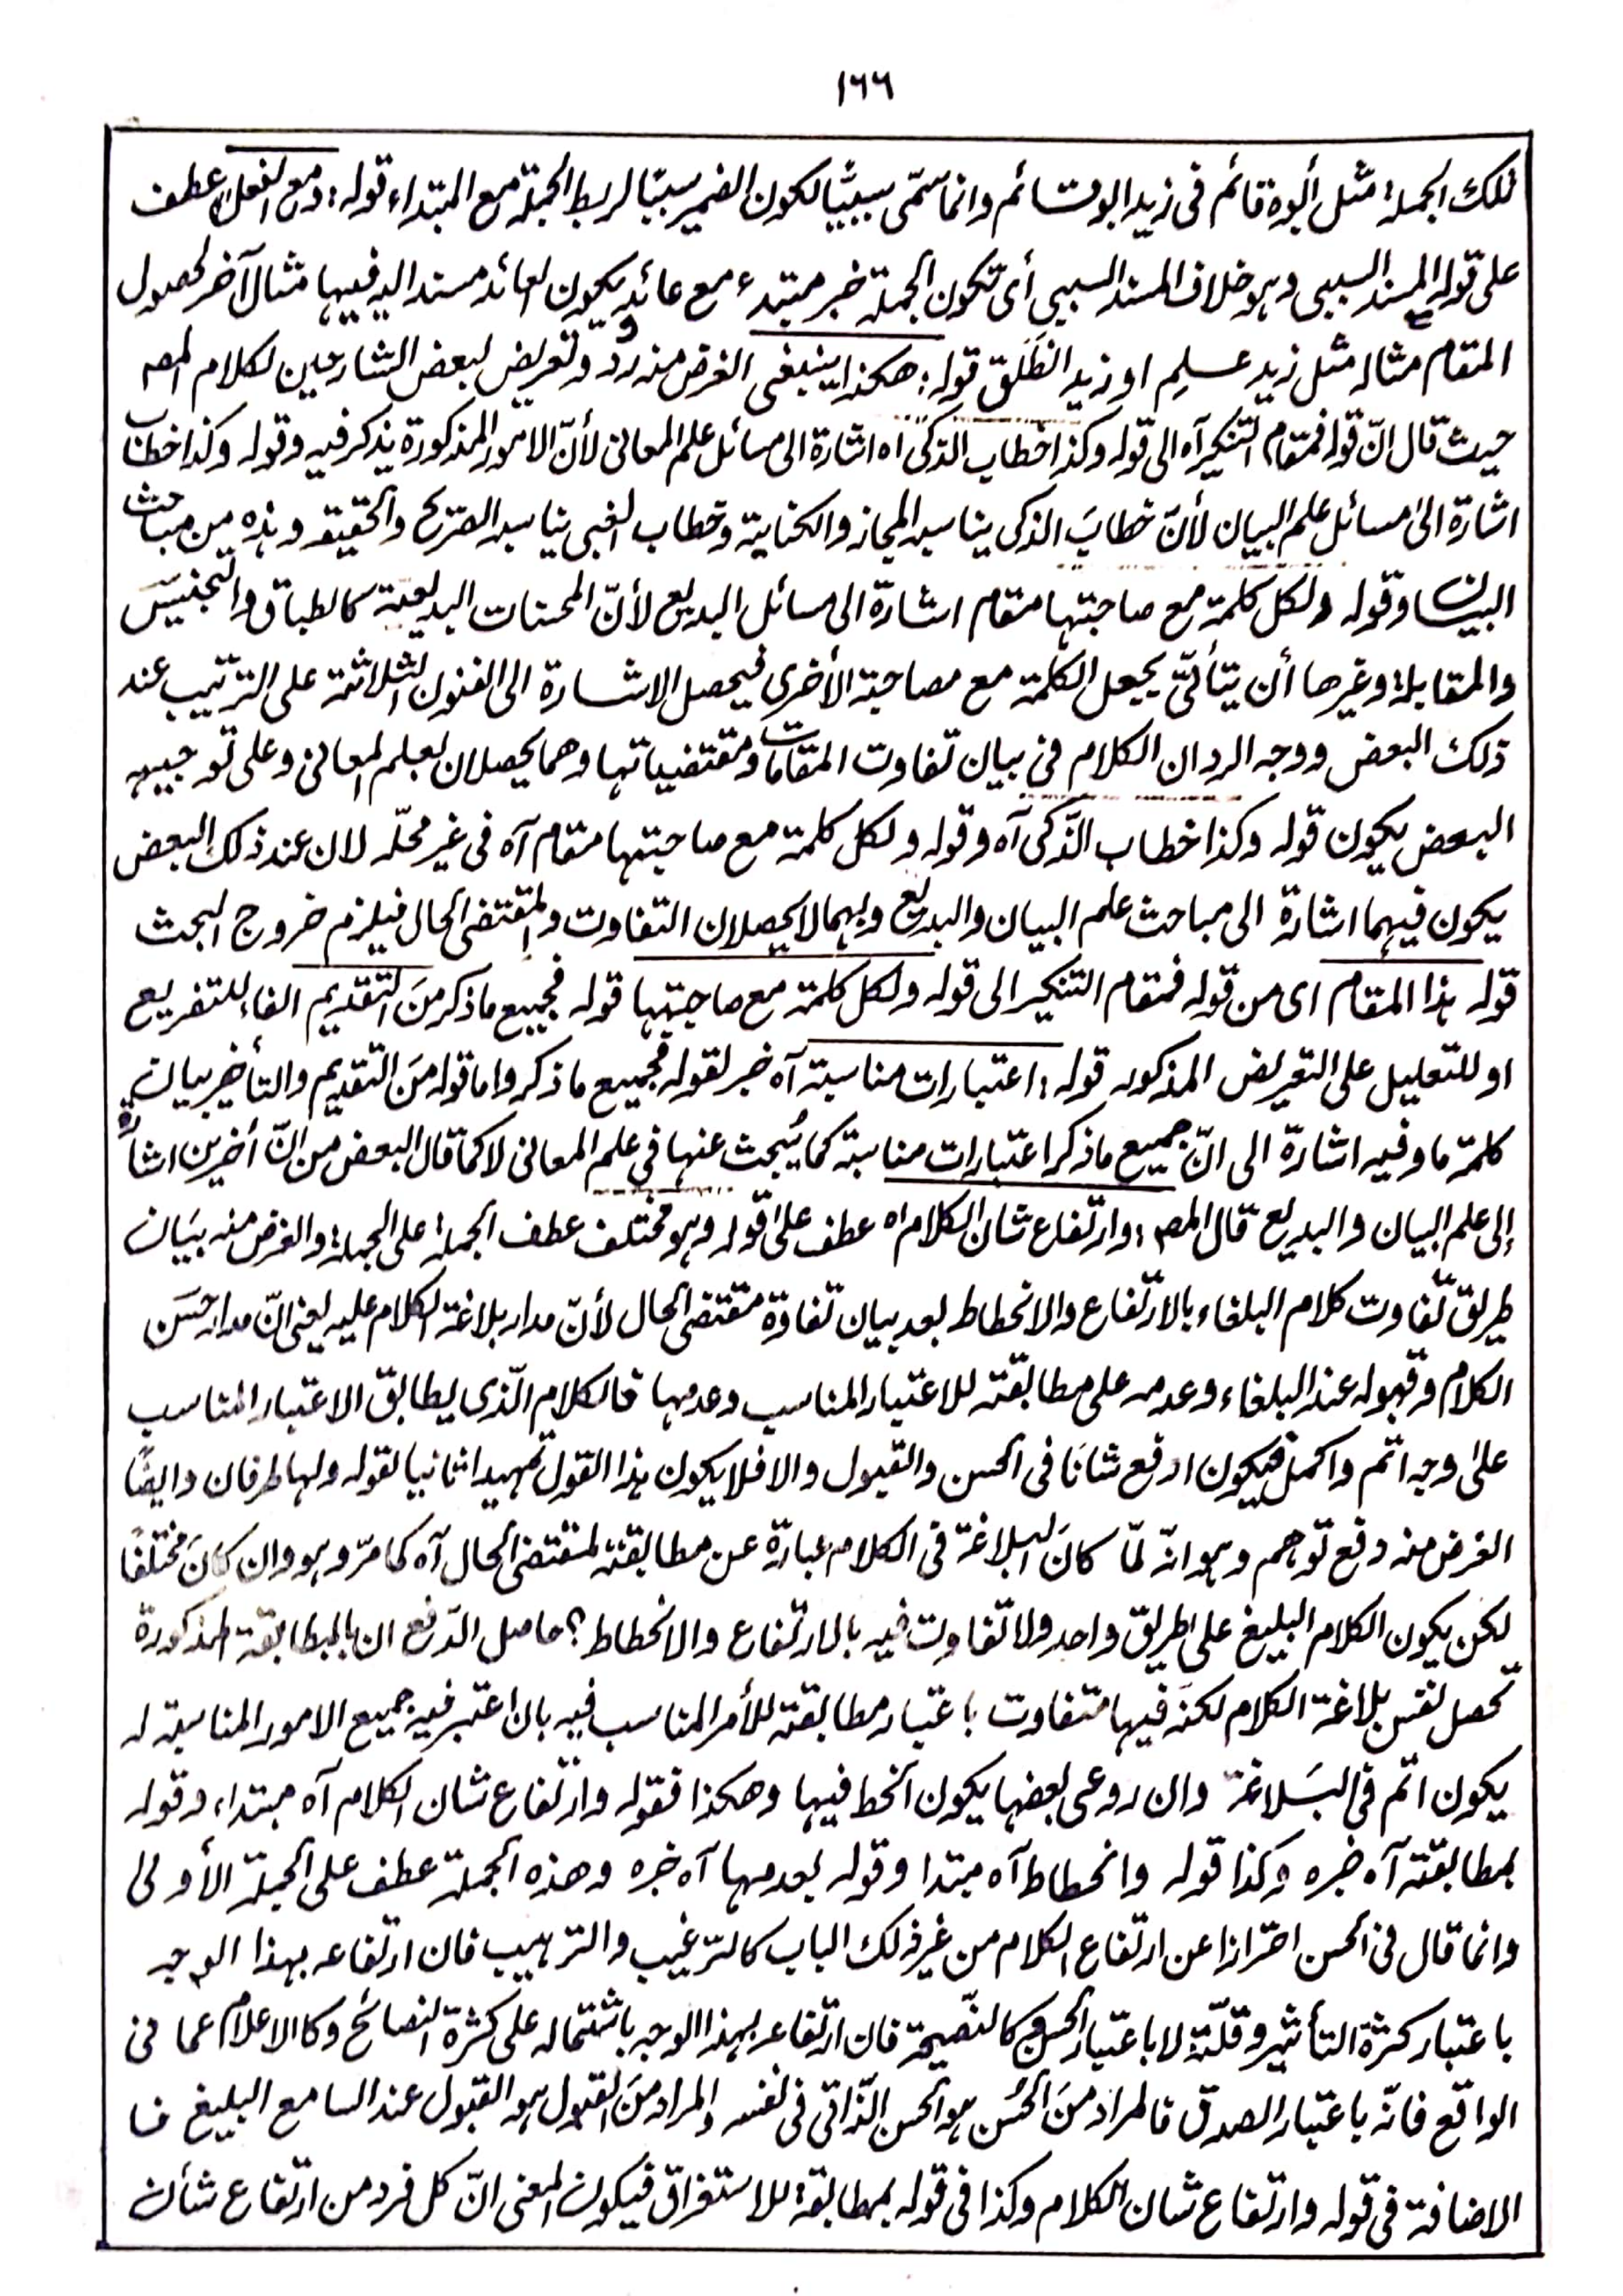 ١٦٦
تلك الجملة مثل أبوه قائم فى زيد ابوه قائم وانما سمّى سببيًّا لكون الضمير سببًا لربط الجملة مع المبتداء قوله: ومع الفعل عطف
على قوله المسند السببى وهو خلاف المسند السببى أى تكون الجملة خبر مبتدء مع عائد يكون العائد مسند اليه فيها مثال آخر لحصول
المقام مثاله مثل زيد عسلم او زيد انطَلَقَ قوله: هكذا ينبغى الغرض منه ردّ وتعريض لبعض الشارحين لكلام المصـ
حيث قال انّ قوله فمقام التنكير آه الى قوله وكذا خطاب الذكى اه اشارة الى مسائل علم المعانى لأنّ الامور المذكورة يذكر فيه وقوله وكذا خطاب
اشارة الى مسائل علم البيان لأنّ خطابَ الذكى يناسبه المجاز والكناية وخطاب الغبى يناسبه الصريح والحقيقة وهذه من مباحث
البيان وقوله ولكل كلمة مع صاحبتها مقام اشارة الى مسائل البديع لأنّ المحسنات البديعية كالطباق والتجنيسَ
والمقابلة وغيرها أن يتأتىّ بجعل الكلمة مع مصاحبة الأخرى فيحصل الاشارة الى الفنون الثلاثة على الترتيب عند
ذلك البعض ووجه الرد ان الكلام فى بيان تفاوت المقامات ومقتضياتها وهما يحصلان بعلم المعانى وعلى توجيه
البعض يكون قوله وكذا خطاب الذّكى آه وقوله ولكل كلمة مع صاحبتها مقام آه فى غير محلّه لان عند ذلك البعض
يكون فيهما اشارة الى مباحث علم البيان والبديع وبهما لا يحصلان التفاوت والمقتضى الحال فيلزم خروج البحث
قوله هذا المقام اى من قوله فمقام التنكير الى قوله ولكل كلمة مع صاحبتها قوله فجميع ما ذكر منَ التقديم الفاء للتفريع
او للتعليل على التعريض المذكور قوله: اعتبارات مناسبة آه خبر لقوله فجميع ما ذكر واما قوله منَ التقديم والتأخير بيان
كلمة ما وفيه اشارة الى انّ جميع ما ذكر اعتبارات مناسبة كما يُبحث عنها في علم المعانى لا كما قال البعض من انّ أخرين اشارة
إلى علم البيان والبديع قال المصـ: وارتفاع شان الكلام اه عطف على قوله وهو مختلف عطف الجملة على الجملة والغرض منه بيَان
طريق تفاوت كلام البلغاء بالارتفاع والانحطاط بعد بيان تفاوة مقتضى الحال لأنّ مدار بلاغة الكلام عليه يعنى انّ مدار حسَن
الكلام وقبوله عند البلغاء وعدمه على مطابقته للاعتبار المناسب وعدمها فالكلام الّذى يطابق الاعتبار المناسب
على وجه اتم واكمل فيكون ارفع شانًا فى الحسن والقبول والا فلا يكون هذا القول تمهيدا ثانيا لقوله ولها طرفان وايضًا
الغرض منه دفع توهم وهو انّه لمّا كانَ البلاغة فى الكلام عبارة عن مطابقته لمقتضى الحال آه كما مرّ وهو وان كانَ مختلفًا
لكن يكون الكلام البليغ على طريق واحد ولا تفاوت فيه بالارتفاع والانحطاط؟ حاصل الدّفع ان بالمطابقة المذكورة
تحصل نفس بلاغة الكلام لكنّه فيها متفاوت باعتبار مطابقته للأمر المناسب فيه بان اعتبر فيه جميع الامور المناسبة له
يكون اتم فى البَلاغة وان روعى بعضها يكون انحط فيها وهكذا فقوله وارتفاع شان الكلام آه مبتداء وقوله
بمطابقته آه خبره وكذا قوله وانحطاط آه مبتدا وقوله بعدمها آه خبره وهذه الجملة عطف على الجملة الأولى
وانما قال فى الحسن احترازا عن ارتفاع الكلام من غير ذلك الباب كالترغيب والترهيب فان ارتفاعه بهذا الوجه
باعتبار كثرة التأثير وقلّته لا باعتبار الحسن وكالنّصيحة فان ارتفاعه بهذا الوجه باشتماله على كثرة النصائح وكالاعلام عما فى
الواقع فانّه باعتبار الصدق فالمراد منَ الحُسن هو الحسن الذّاتى فى نفسه والمراد منَ القبول هو القبول عند السامع البليغ فا
الاضافة فى قوله وارتفاع شان الكلام وكذا فى قوله بمطابقة للاستغراق فيكون المعنى انّ كل فرد من ارتفاع شأن